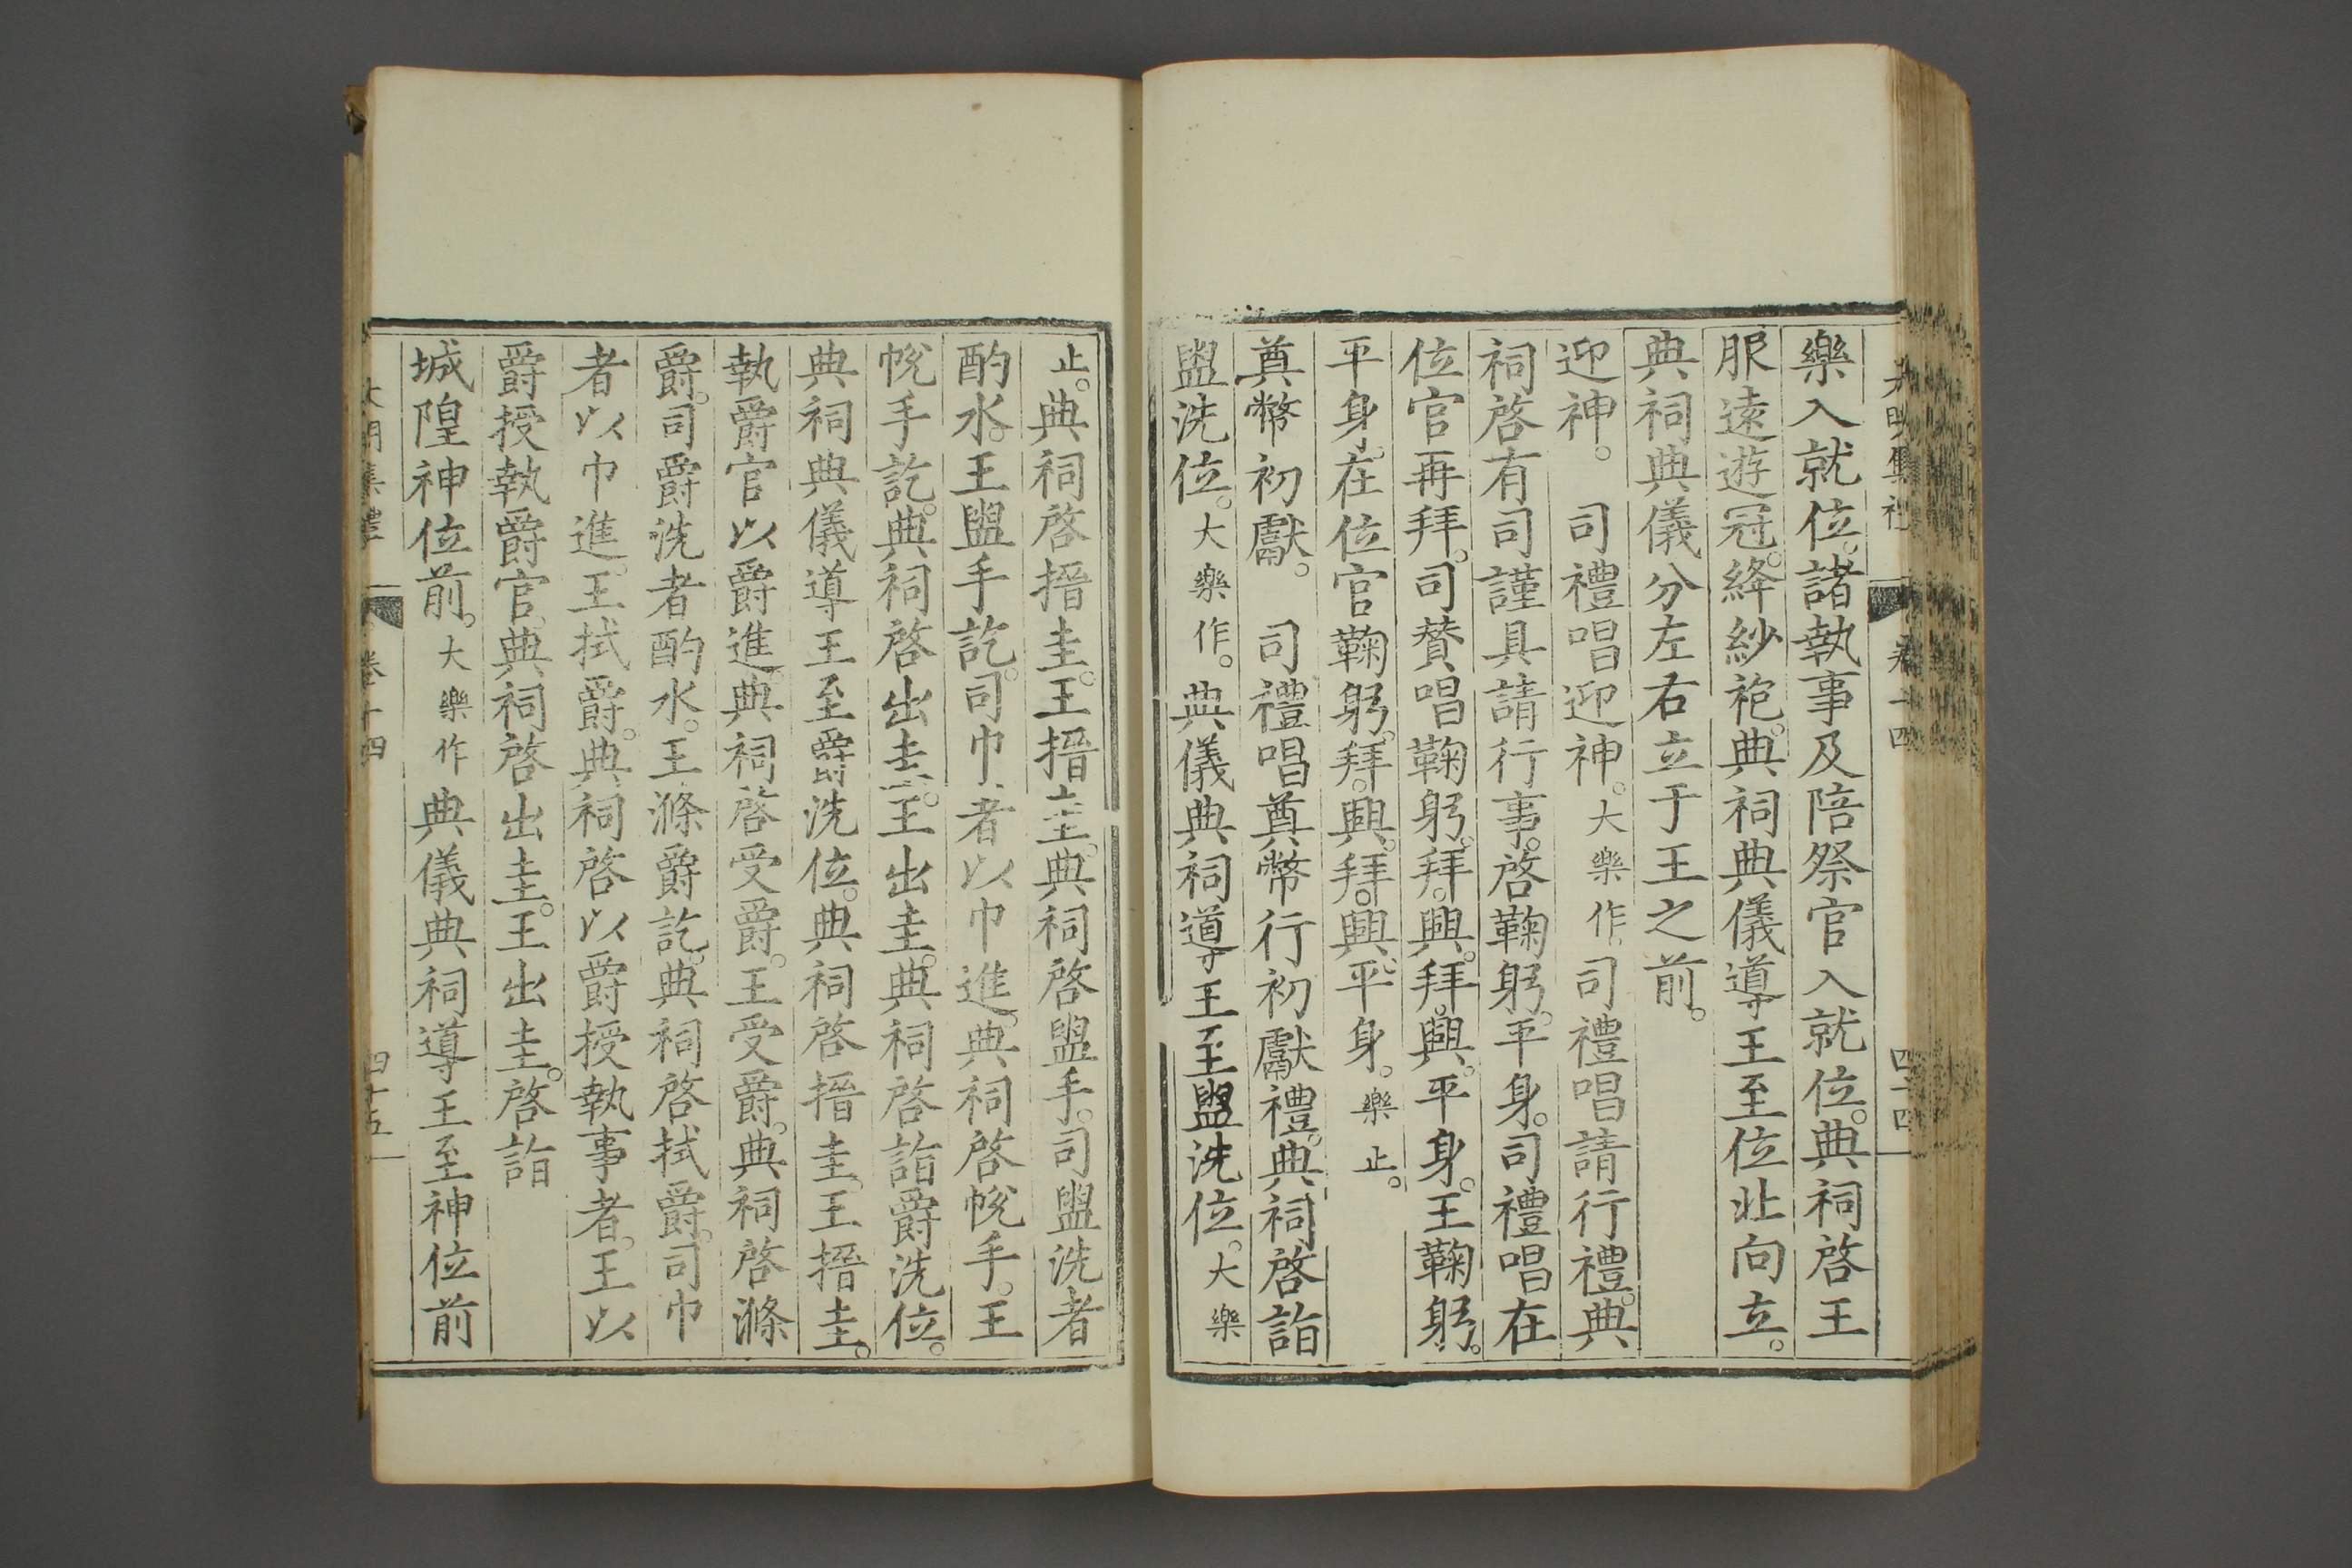 樂入就位。諸執事及陪祭官入就位。典祠啓王
服遠遊冠。絳紗袍。典祠典儀導王至位北向立。
典祠典儀分左右立于王之前。
迎神。　司禮唱迎神。大樂作。司禮唱請行禮。典
祠啓有司謹具請行事。啓鞠躬。平身。司禮唱在
位官再拜。司贊唱鞠躬。拜。興。拜。興。平身。王鞠躬。
平身。在位官鞠躬。拜。興。拜。興。平身。樂止。
奠幣初獻。　司禮唱奠幣行初獻禮。典祠啓詣
盥洗位。大樂作。典儀典祠導王至盥洗位。大樂
止。典祠啓搢圭。王搢圭。典祠啓盥手。司盥洗者
酌水。王盥手訖。司巾者以巾進。典祠啓帨手。王
帨手訖。典祠啓出圭。王出圭。典祠啓詣爵洗位。
典祠典儀導王至爵洗位。典祠啓搢圭。王搢圭。
執爵官以爵進。典祠啓受爵。王受爵。典祠啓滌
爵。司爵洗者酌水。王滌爵訖。典祠啓拭爵。司巾
者以巾進。王拭爵。典祠啓以爵授執事者。王以
爵授執爵官。典祠啓出圭。王出圭。啓詣
城隍神位前。大樂作　典儀典祠導王至神位前
大明集禮　卷十四　四十五